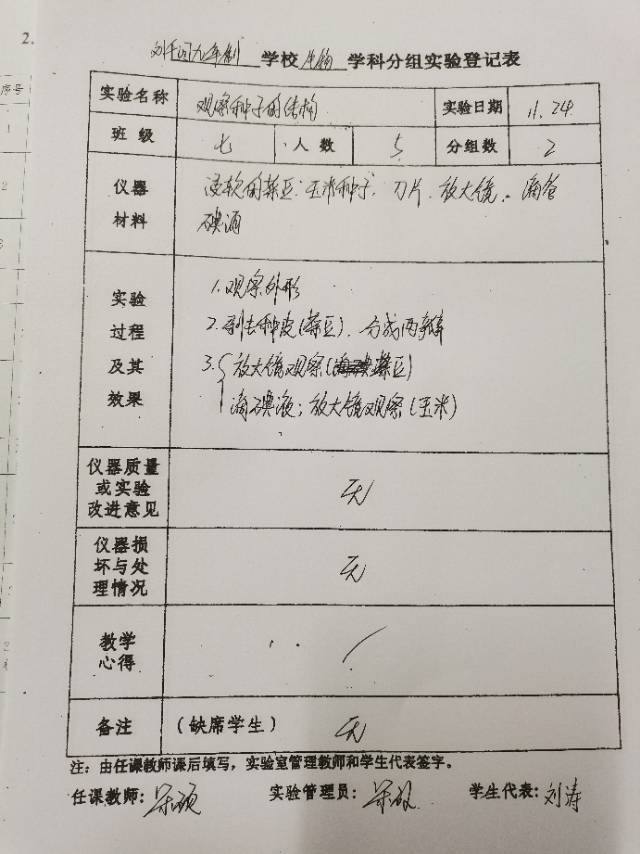 2.
九年制 学校 生物 学科分组实验登记表
实验名称 观察种子的结构 实验日期 11.24
班级 七 人数 5 分组数 2
仪器材料 浸软的菜豆、玉米种子、刀片、放大镜、滴管
碘酒
实验过程及其效果
1.观察外形
2.剥去种皮(菜豆)、分成两瓣
3.放大镜观察(菜豆)
滴碘液;放大镜观察(玉米)
仪器质量或实验改进意见 无
仪器损坏与处理情况 无
教学心得
备注 (缺席学生) 无
注:由任课教师课后填写,实验室管理教师和学生代表签字。
任课教师: 实验管理员: 学生代表:刘涛
序号
1
2
3